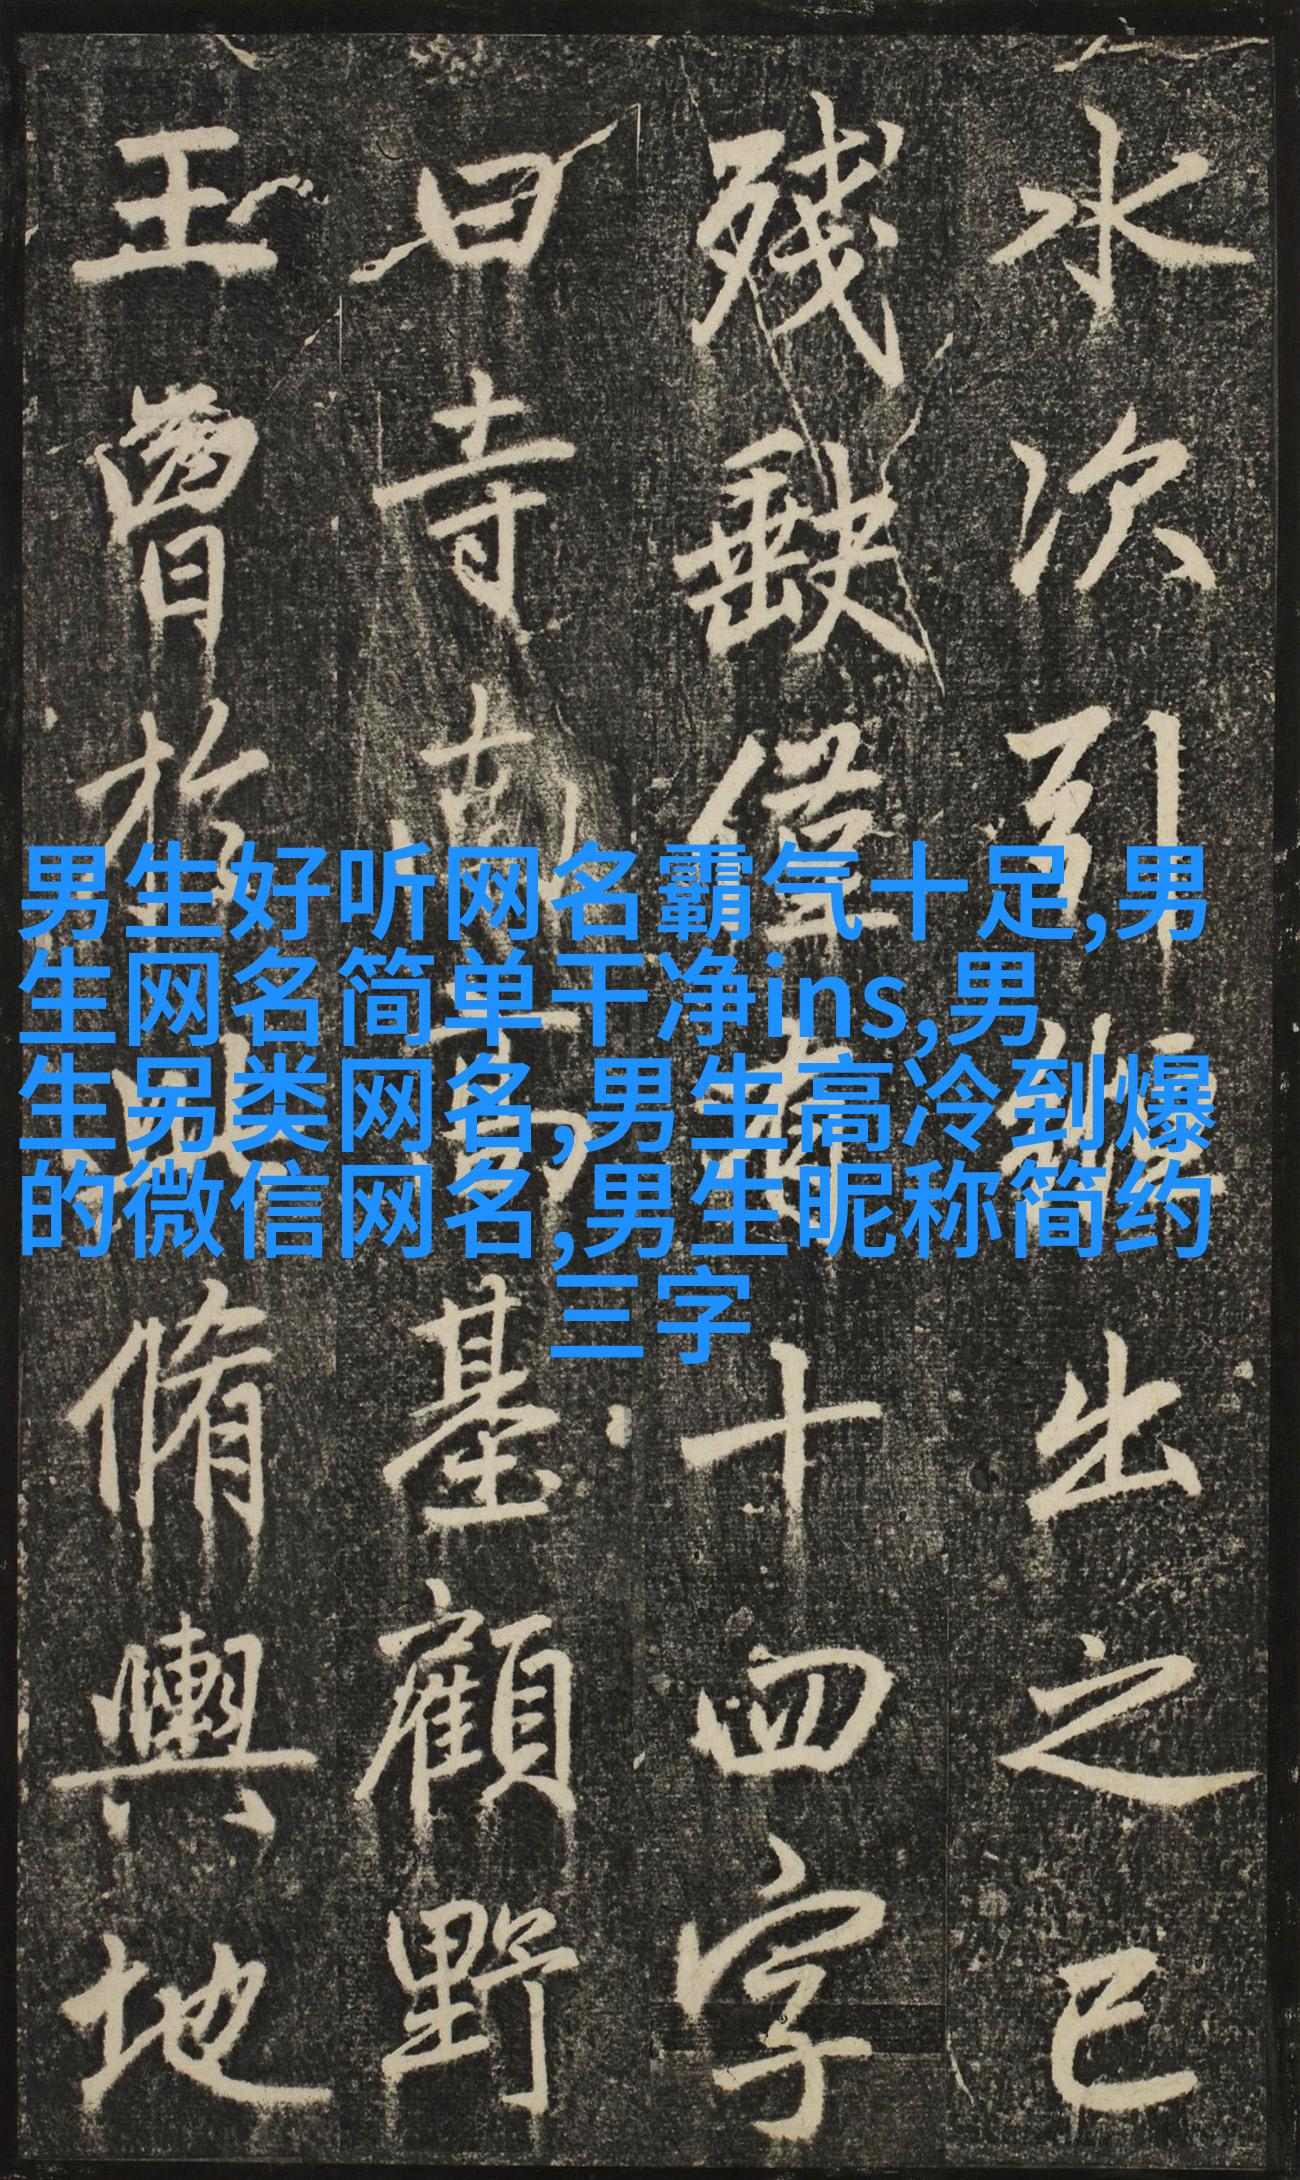 男生好听网名霸气十足,男
生网名简单干净ins,男
生另类网名,男生高冷到爆
的微信网名,男生昵称简约
三字
水次引出之已
殘缺僅十四字
曰寺南高基顧野
王曾於此脩輿地